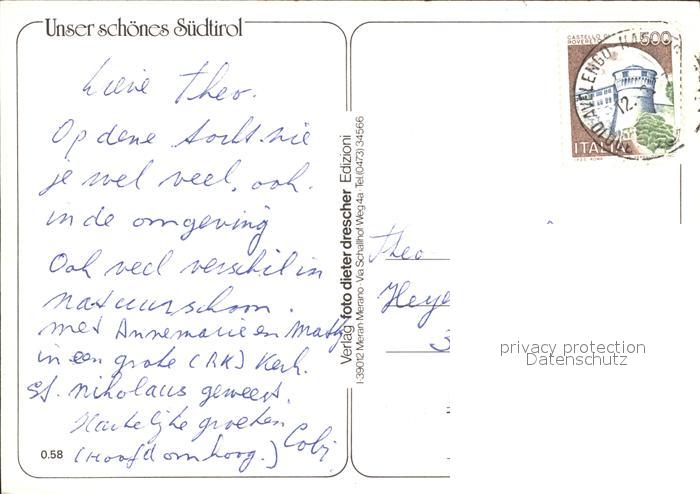 Unser schönes Südtirol
Lieve Theo.
Op deze tocht zie
je wel veel, ook.
in de omgeving
Ook veel verschil in
natuurschoon.
met Annemarie en Mathy
in een grote (RK) Kerk.
St. Nikolaus geweest.
Hartelijke groeten
Coby
(Hoofd omhoog.)
0.58
Verlag foto dieter drescher Edizioni
I-39012 Meran Merano·Via Schallhof Weg 4a·Tel.(0473) 34566
CASTELLO DI
ROVERETO
500
ITALIA
AVELENGO
12.
Theo
Heye
3
privacy protection
Datenschutz